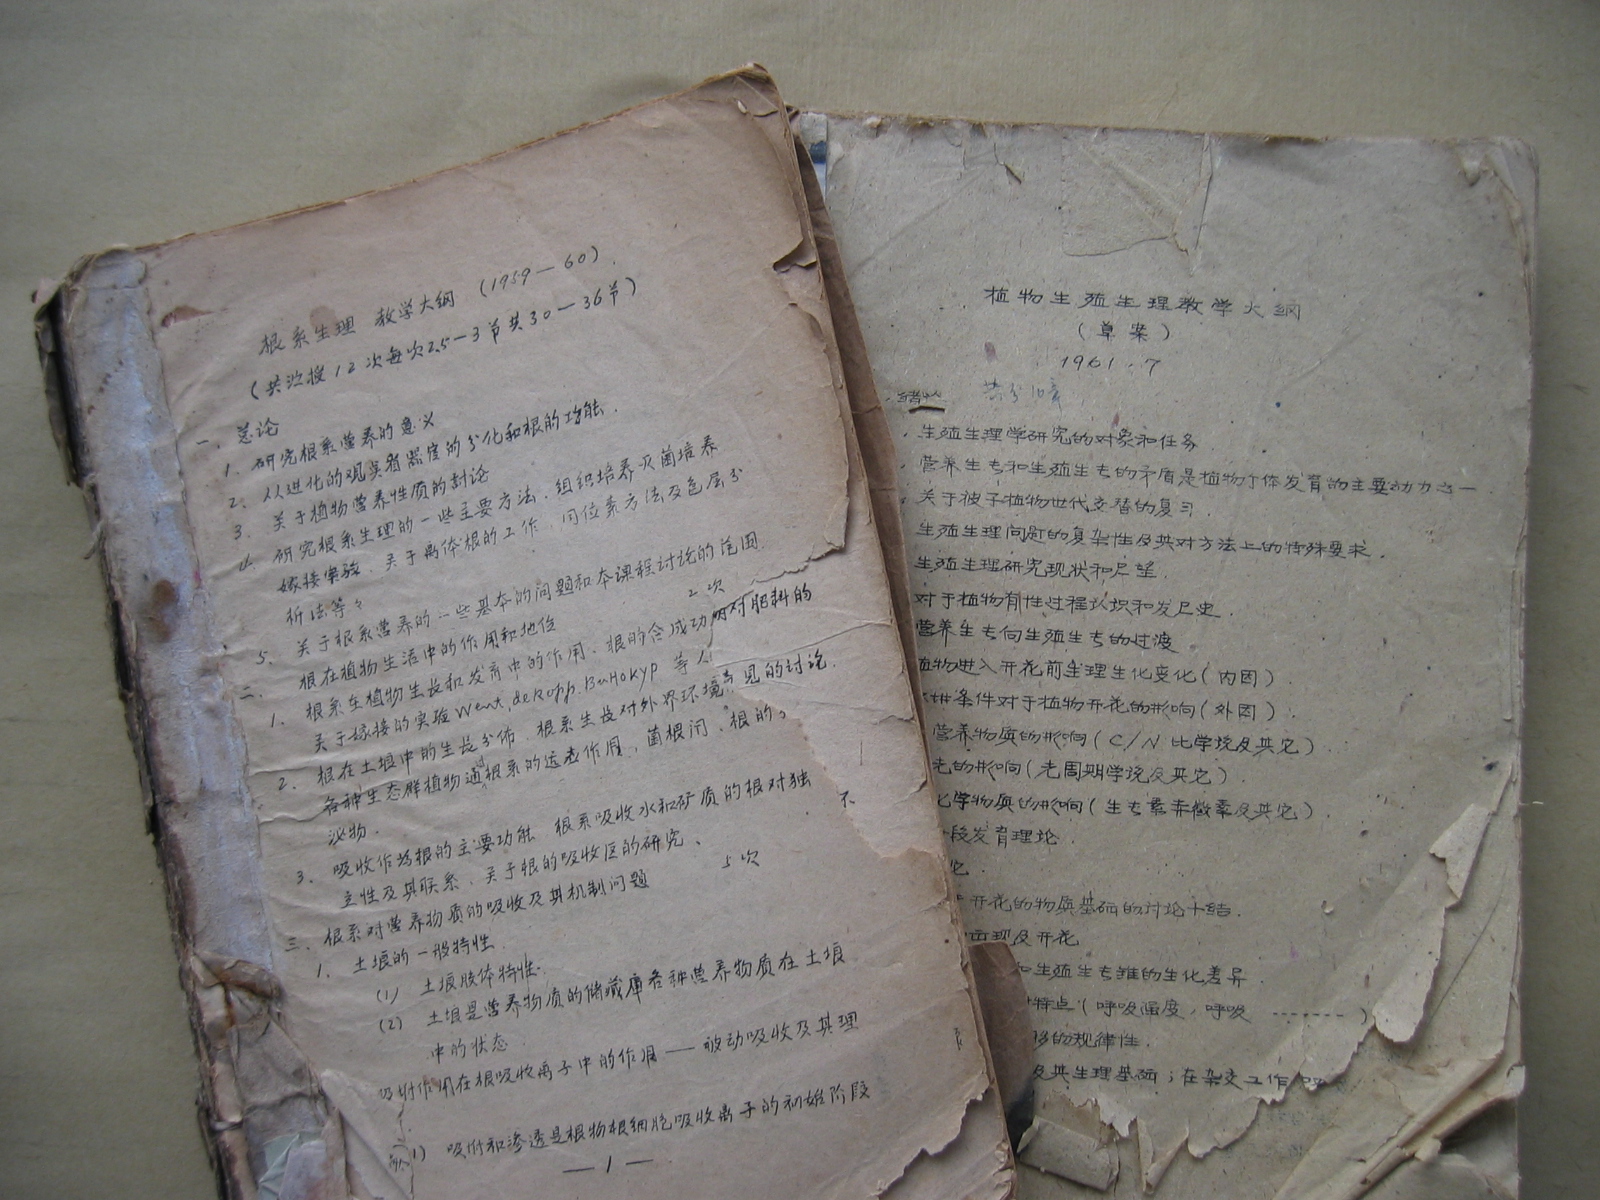 根系生理 教学大纲 (1959—60).
(共议授12次每次2.5—3节共30—36节)
一. 总论
1. 研究根系营养的意义
2. 从进化的观点看器官的分化和根的功能.
3. 关于植物营养性质的讨论
4. 研究根系生理的一些主要方法. 组织培养灭菌培养
嫁接实验. 关于离体根的工作. 同位素方法及色层分
析法等々
5. 关于根系营养的一些基本的问题和本课程讨论的范围.
二. 根在植物生活中的作用和地位 2次
1. 根系在植物生长和发育中的作用、根的合成功 对肥料的
关于嫁接的实验 Went, de Ropp. Винокур 等人 意见的讨论.
2. 根在土壤中的生长分佈. 根系生长对外界环境
各种生态群植物通根系的 作用. 菌根 . 根的
泌物.
3. 吸收作为根的主要功能 根系吸收水和矿质的根对独 不
立性及其联系. 关于根的吸收区的研究、
三. 根系对营养物质的吸收及其机制问题 5次
1. 土壤的一般特性.
(1) 土壤胶体特性.
(2) 土壤是营养物质的储藏库各种营养物质在土壤
中的状态.
吸附作用在根吸收离子中的作用——被动吸收及其理
1) 吸附和渗透是植物根细胞吸收离子的初始阶段
—1—
植物生殖生理教学大纲
(草案)
1961.7
绪论 共分10章
生殖生理学研究的对象和任务
营养生长和生殖生长的矛盾是植物个体发育的主要动力之一
关于被子植物世代交替的复习.
生殖生理问题的复杂性及其对方法上的特殊要求.
生殖生理研究现状和展望.
对于植物有性过程认识和发展史.
营养生长向生殖生长的过渡
植物进入开花前生理生化变化(内因).
条件对于植物开花的影响(外因).
营养物质的影响(C/N比学说及其它).
光的影响(光周期学说及其它).
化学物质的影响(生长素赤霉素及其它).
段发育理论.
化.
开花的物质基础的讨论小结.
现及开花
和生殖生长锥的生化差异
特点(呼吸强度,呼吸 --------)
的规律性.
及其生理基础;在杂交工作